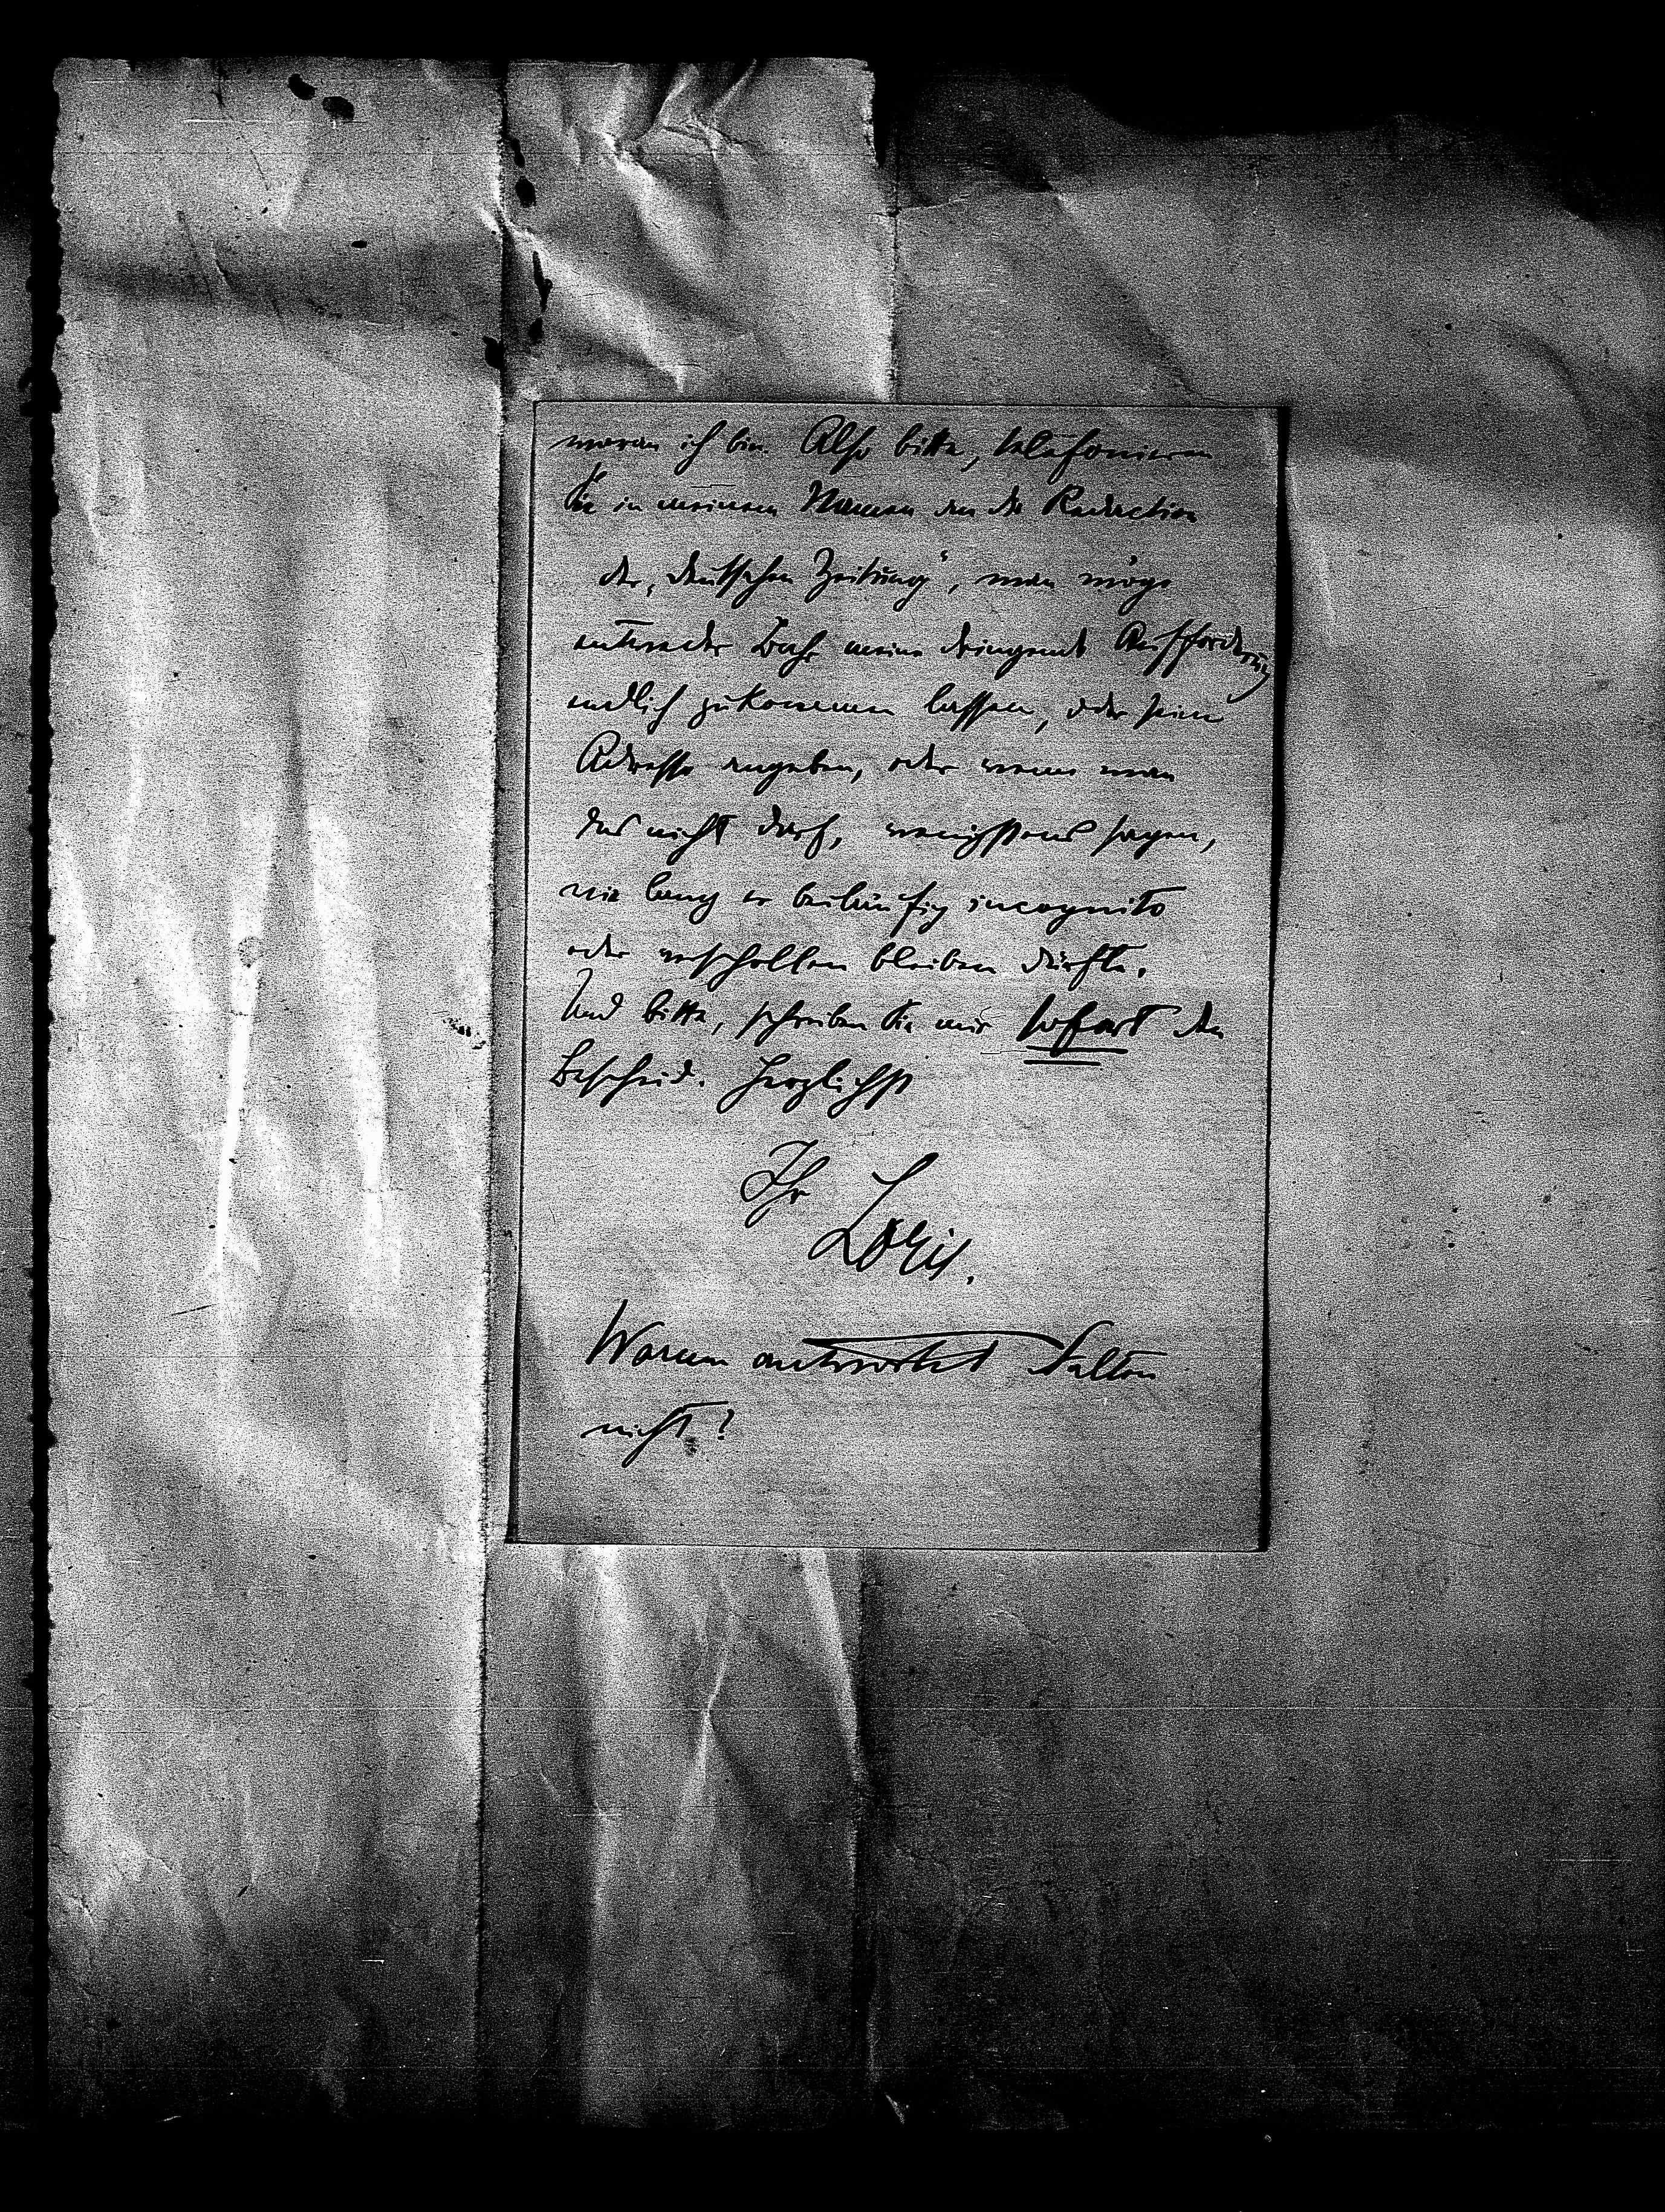 woran ich bin. Also bitte, telefonieren
Sie in meinem Namen an die Redaction
der „deutschen Zeitung“, man möge
entweder Bahr meine dringende Aufforderung
endlich zukommen lassen, oder seine
Adresse angeben, oder wenn man
das nicht darf, wenigstens sagen,
wie lang er beiläufig incognito
oder verschollen bleiben dürfte.
Und bitte, schreiben Sie mir sofort den
Bescheid. Herzlichst
Ihr
Loris.
Warum antwortet Salten
nicht?